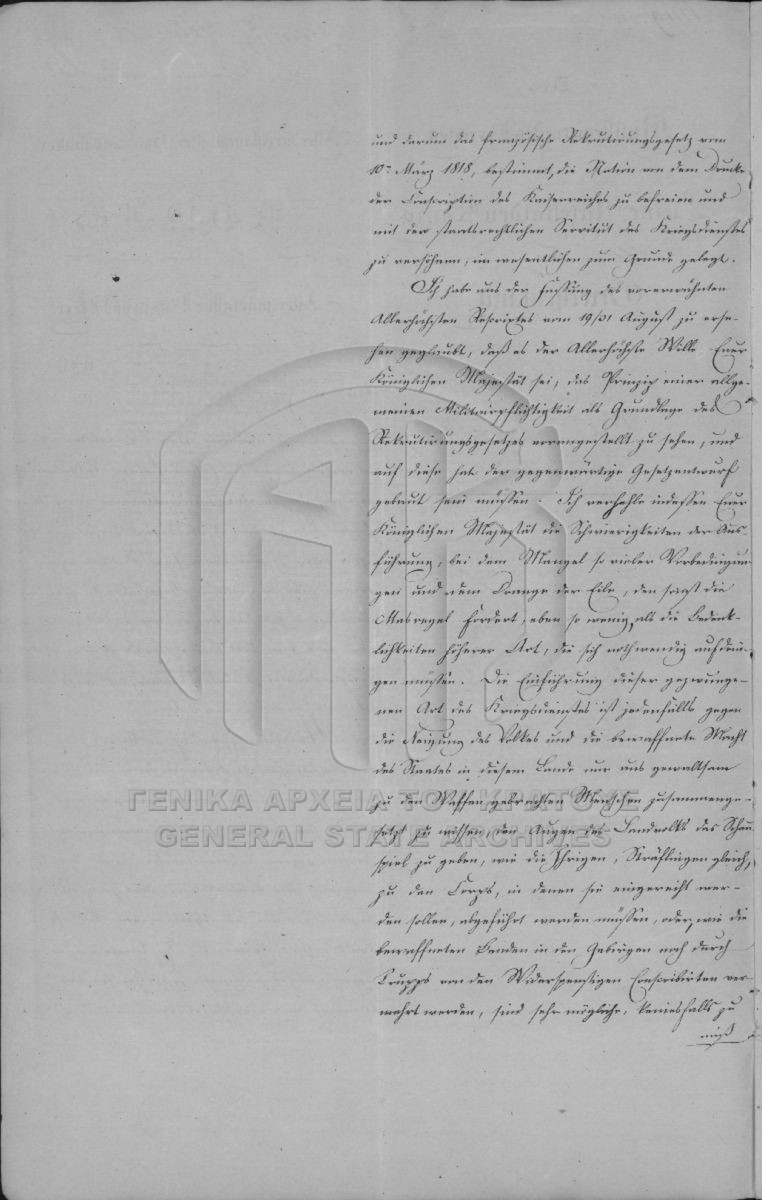 und darum das französische Rekrutirungsgesetz vom
10ⁿ März 1818, bestimmt, die Nation von dem Drucke
der Conscription des Kaiserreiches zu befreien und
mit der staatsrechtlichen Servitut des Kriegsdienstes
zu versöhnen, im wesentlichen zum Grunde gelegt.
Ich habe aus der Fassung des vorerwähnten
Allerhöchsten Rescriptes vom 19/31 August zu erse-
hen geglaubt, daß es der Allerhöchste Wille Euer
Königlichen Majestät sei, das Prinzip einer allge-
meinen Militairpflichtigkeit als Grundlage des
Rekrutirungsgesetzes vorangestellt zu sehen, und
auf diese hat der gegenwärtige Gesetzentwurf
gebaut sein müssen. Ich verhehle indessen Euer
Königlichen Majestät die Schwierigkeiten der Aus-
führung, bei dem Mangel so vieler Vorbedingun-
gen und dem Drange der Eile, den sonst die
Masregel fordert, eben so wenig, als die Bedenk-
lichkeiten höherer Art, die sich nothwendig aufdrin-
gen müssen. Die Einführung dieser gezwunge-
nen Art des Kriegsdienstes ist jedenfalls gegen
die Neigung des Volkes und die bewaffnete Macht
des Staates in diesem Lande nur aus gewaltsam
zu den Waffen gebrachten Menschen zusammenge-
setzt zu wissen, den Augen des Landvolks das Schau-
spiel zu geben, wie die Ihrigen, Sträflingen gleich,
zu den Corps, in denen sie eingereiht wer-
den sollen, abgeführt werden müssen, oder, wie die
bewaffneten Banden in den Gebirgen noch durch
Trupps von den Widerspenstigen Conscribirten ver-
mehrt werden, sind sehr mögliche, keinesfalls zu
miß
ΓΕΝΙΚΑ ΑΡΧΕΙΑ ΤΟΥ ΚΡΑΤΟΥΣ
GENERAL STATE ARCHIVES